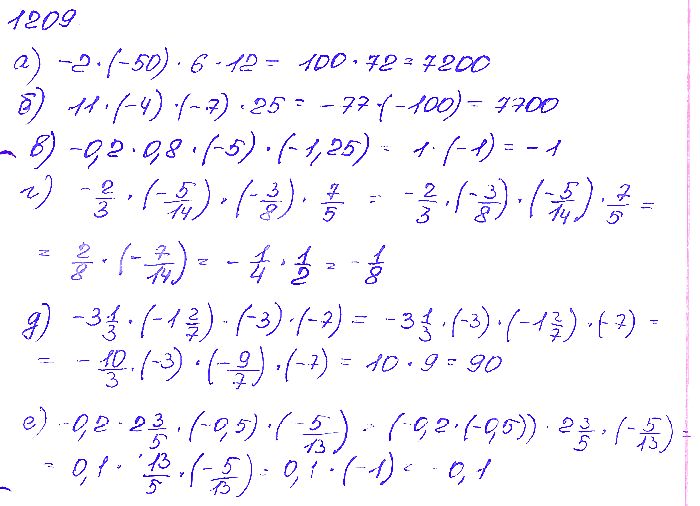 1209
а) -2 · (-50) · 6 · 12 = 100 · 72 = 7200
б) 11 · (-4) · (-7) · 25 = -77 · (-100) = 7700
в) -0,2 · 0,8 · (-5) · (-1,25) = 1 · (-1) = -1
г) -2/3 · (-5/14) · (-3/8) · 7/5 = -2/3 · (-3/8) · (-5/14) · 7/5 =
= 2/8 · (-7/14) = -1/4 · 1/2 = -1/8
д) -3 1/3 · (-1 2/7) · (-3) · (-7) = -3 1/3 · (-3) · (-1 2/7) · (-7) =
= -10/3 · (-3) · (-9/7) · (-7) = 10 · 9 = 90
е) -0,2 · 2 3/5 · (-0,5) · (-5/13) = (-0,2 · (-0,5)) · 2 3/5 · (-5/13) =
= 0,1 · 13/5 · (-5/13) = 0,1 · (-1) = -0,1